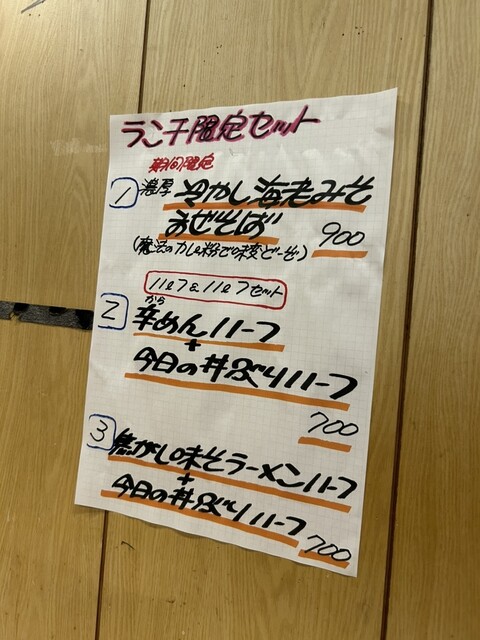 ランチ限定セット
期間限定
1 濃厚 冷やし海老みそ
まぜそば
900
(魔法のカレー粉で味変どーぞ)
ハーフ&ハーフセット
から
2 辛めんハーフ
+
今日の丼ぶりハーフ
700
3 焦がし味そラーメンハーフ
+
今日の丼ぶりハーフ
700